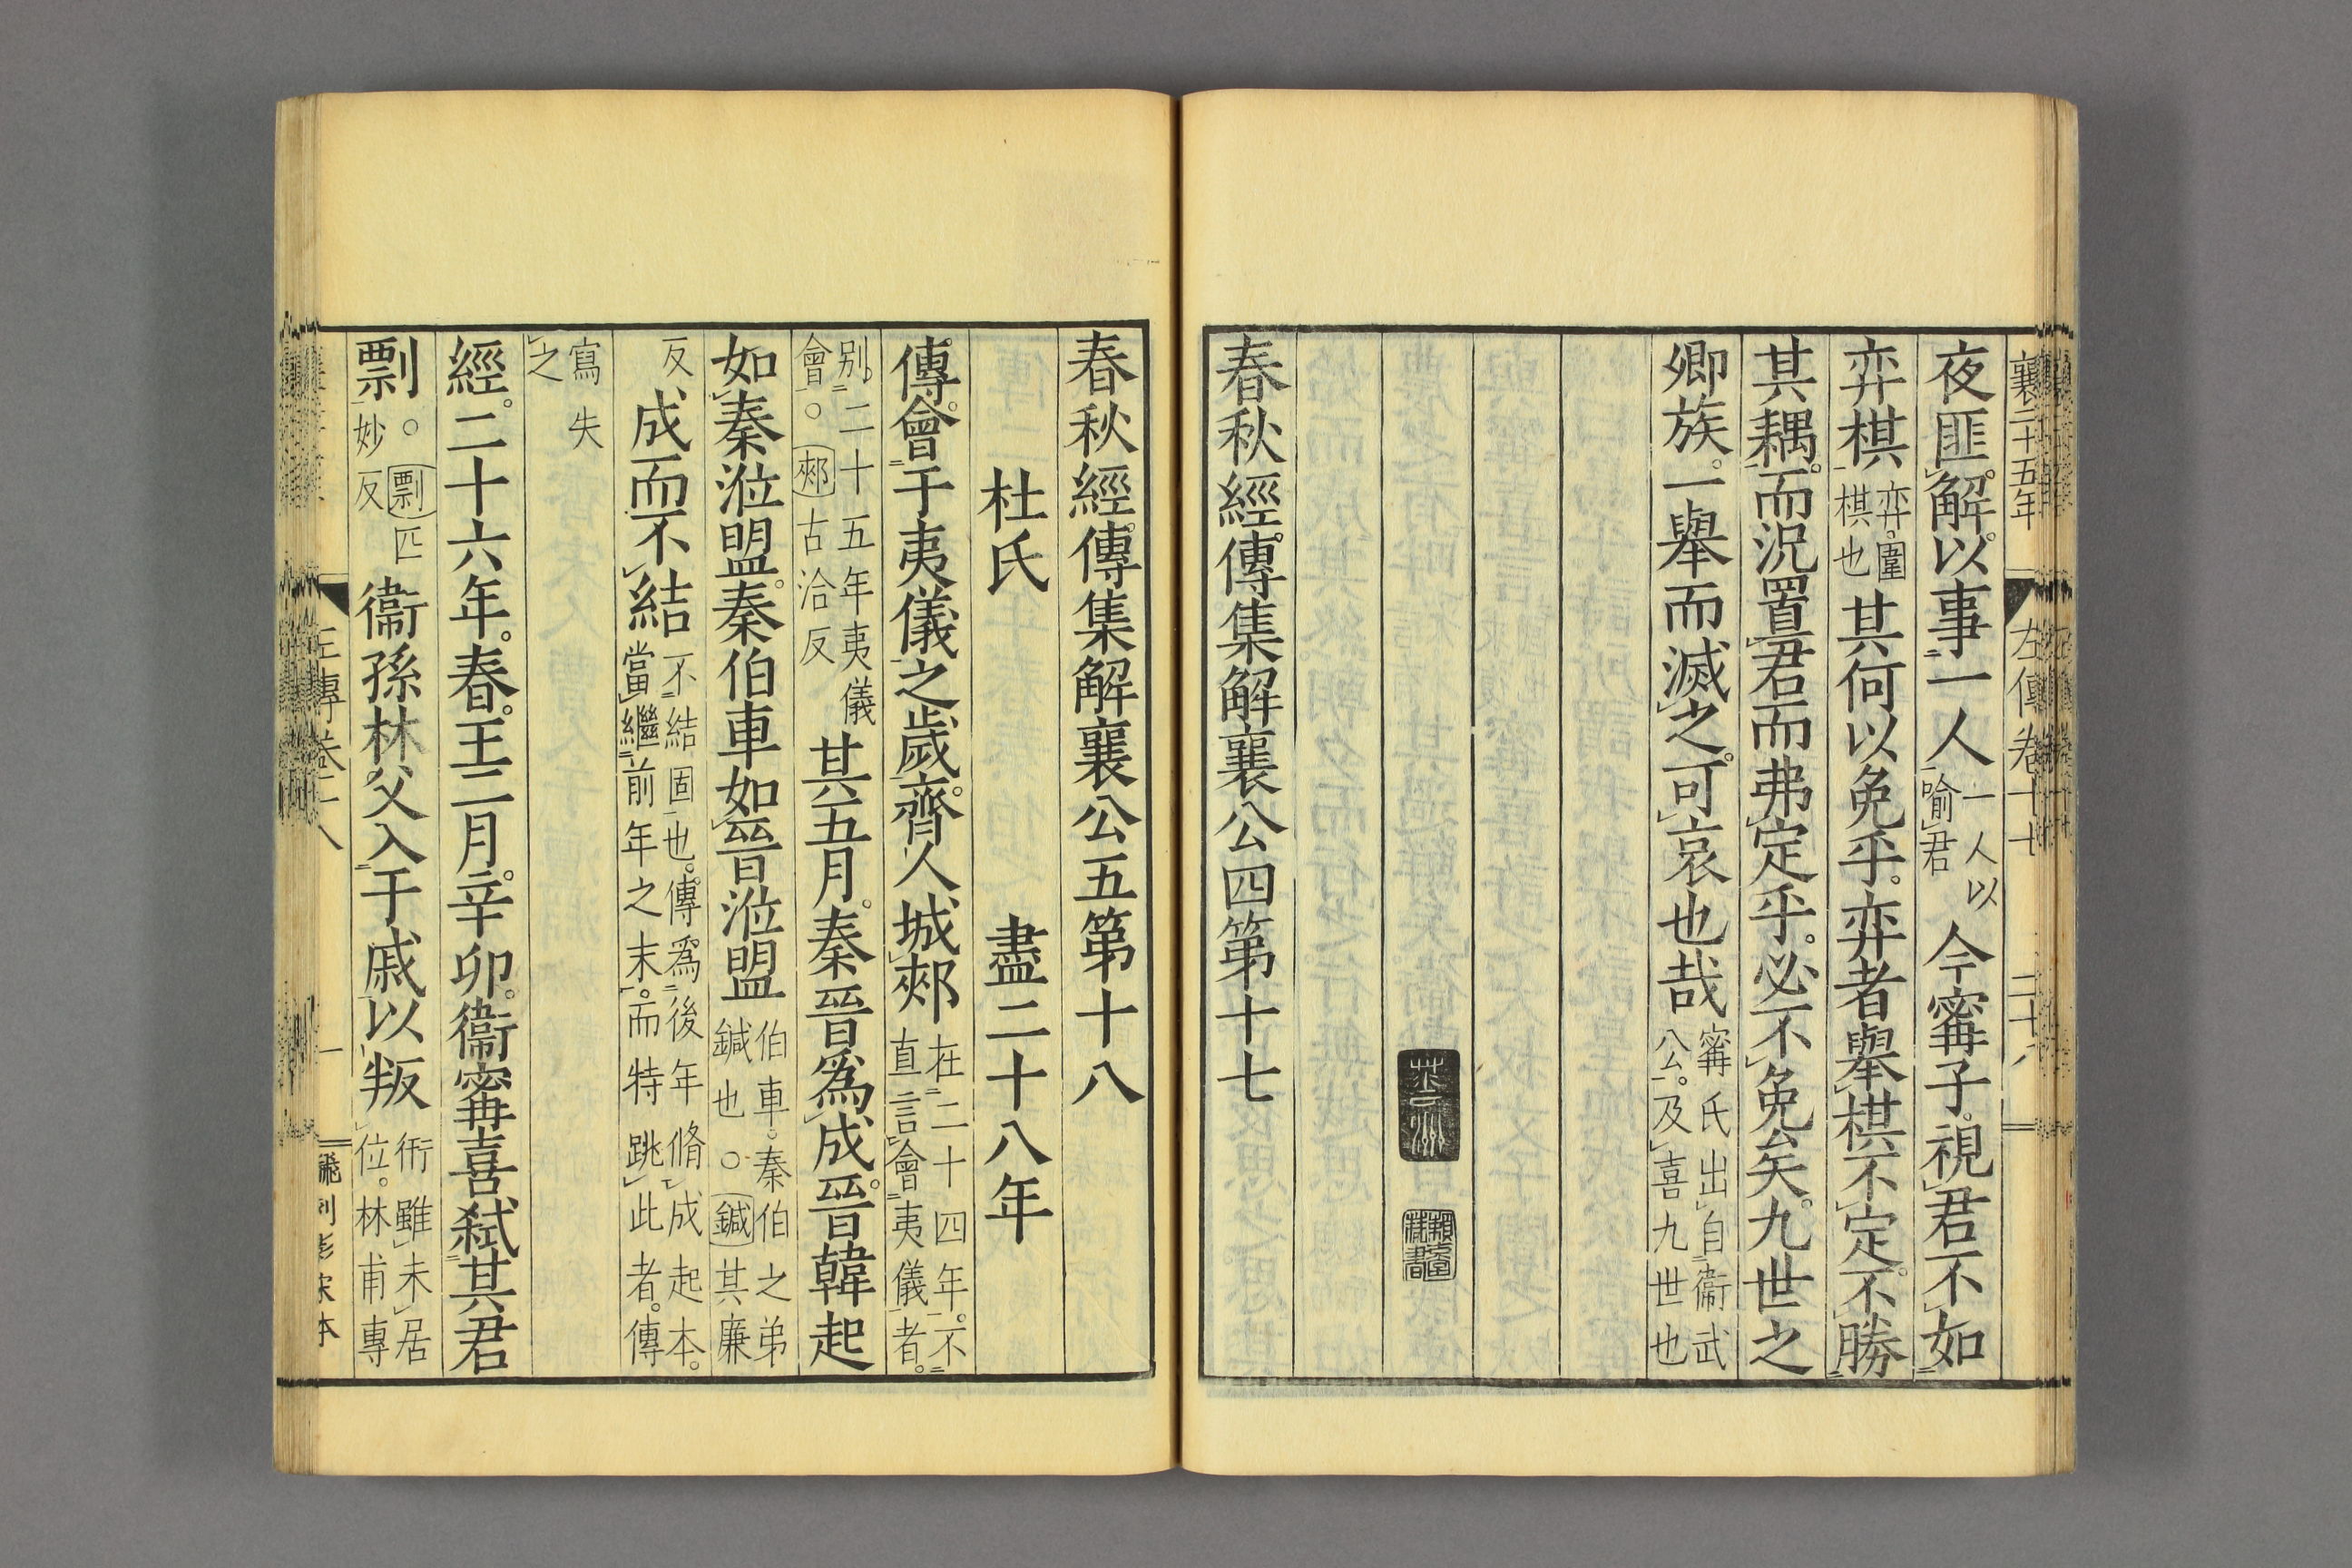 襄二十五年
左傳卷十七
夜匪解以事一人一人以喻君今寗子視君不如
弈棋弈圍棋也其何以免乎弈者舉棋不定不勝
其耦而況置君而弗定乎必不免矣九世之
卿族一舉而滅之可哀也哉寗氏出自衞武公及喜九世也
春秋經傳集解襄公四第十七
春秋經傳集解襄公五第十八
杜氏 盡二十八年
傳會于夷儀之歲齊人城郟在二十四年不直言會夷儀者
別二十五年夷儀會○郟古洽反其五月秦晉爲成晉韓起
如秦涖盟秦伯車如晉涖盟伯車秦伯之弟鍼也○鍼其廉
反成而不結不結固也傳爲後年脩成起本當繼前年之末而特跳此者傳
寫失之
經二十六年春王二月辛卯衞寗喜弒其君
剽○剽匹妙反衞孫林父入于戚以叛衎雖未居位林甫專